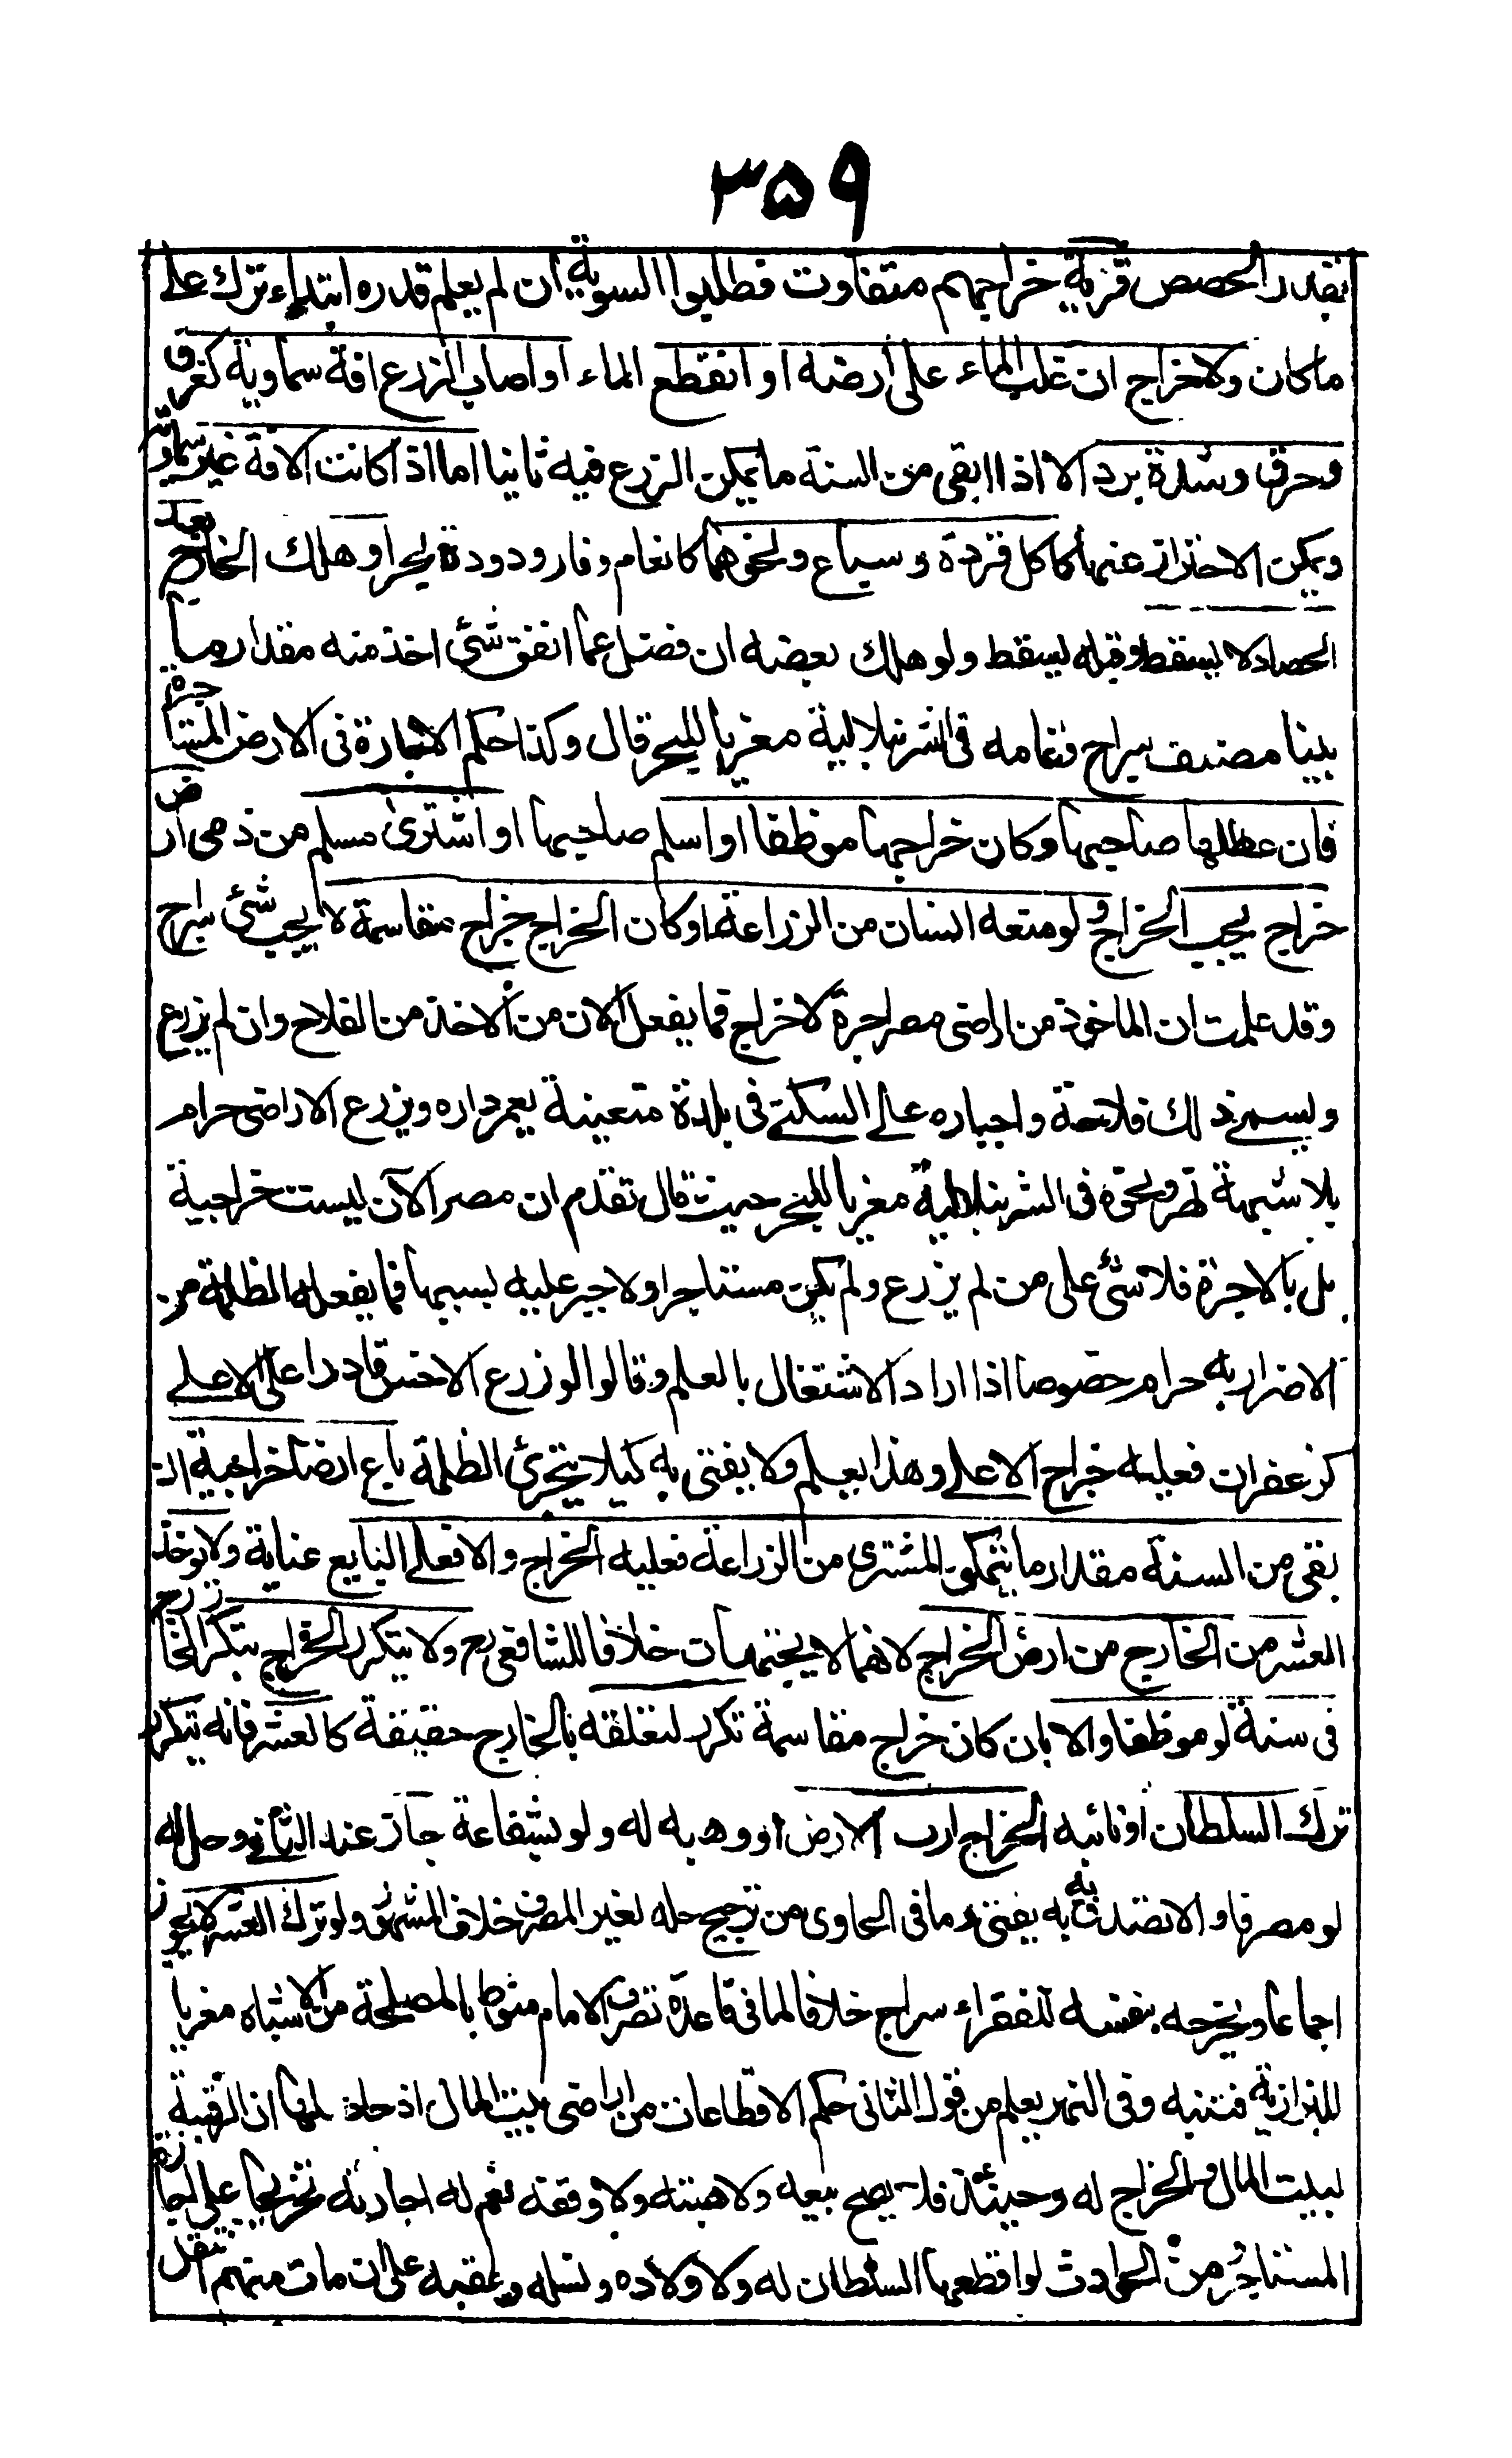 ۳۵۹
بقدر الحصص قرية خراجهم متفاوت فطلبوا السوية ان لم يعلم قدره ابتداء ترك على
ما كان ولا خراج ان غلب الماء على ارضه او انقطع الماء او اصاب الزرع افة سماوية كغرق
وحرق وشدة برد الا اذا بقى من السنة ما يمكن الزرع فيه ثانيا اما اذا كانت الافة غير سماوية
ويمكن الاحتراز عنها كاكل قردة وسباع ونحوهما كانعام وفار ودودة بحر او هلك الخارج بعد
الحصاد لا يسقط وقبله يسقط ولو هلك بعضه ان فضل عما انفق شئ اخذ منه مقدار ما
بينا مصنف سراج وتمامه فى الشرنبلالية مغريا للبحر قال وكذا حكم الاجارة فى الارض المستاجرة
فان عطلها صاحبها وكان خراجها موظفا او اسلم صاحبها او اشترى مسلم من ذمى ارض
خراج يجب الخراج ولو منعه انسان من الزراعة او كان الخراج خراج مقاسمة لا يجب شئ سراج
وقد علمت ان الماخوذ من اراضى مصر اجرة لا خراج فما يفعل الان من الاخذ من الفلاح وان لم يزرع
ويسمى ذلك فلاحة واجباره على السكنى فى بلدة متعينة يعمر داره ويزرع الاراضى حرام
بلا شبهة نهر ونحوه فى الشرنبلالية مغريا للبحر حيث قال تقدم ان مصر الآن ليست خراجية
بل بالاجرة فلا شئ على من لم يزرع ولم يكن مستاجرا ولا جبر عليه بسببها فما يفعله الظلمة من
الاضرار به حرام خصوصا اذا اراد الاشتغال بالعلم وقالوا لو زرع الاخس قادرا على الاعلى
كزعفران فعليه خراج الاعلى وهذا يعلم ولا يفتى به كيلا يتجرئ الظلمة باع ارضا خراجية ان
بقى من السنة مقدار ما يتمكن المشترى من الزراعة فعليه الخراج والا فعلى البايع عناية ولا يوخذ
العشر من الخارج من ارض الخراج لانهما لا يجتمعان خلافا للشافعى رح ولا يتكرر الخراج بتكرر الخارج
فى سنة لو موظفا والا بان كان خراج مقاسمة تكرر لتعلقه بالخارج حقيقة كالعشر فانه يتكرر
ترك السلطان او نائبه الخراج لرب الارض او وهبه له ولو بشفاعة جاز عند الثانى وحل له
لو مصرفا والا تصدق به به يفتى وما فى الحاوى من ترجيح حله لغير المصرف خلاف المشهور ولو ترك العشر لا يجوز
اجماعا ويخرجه بنفسه للفقراء سراج خلافا لما فى قاعدة تصرف الامام منوط بالمصلحة من الاشباه مغريا
للبزازية فتنبه وفى النهر يعلم من قول الثانى حكم الاقطاعات من اراضى بيت المال اذ حاصلها ان الرقبة
لبيت المال والخراج له وحينئذ فلا يصح بيعه ولا هبته ولا وقفه نعم له اجارته تخريجا على اجارة
المستاجر من الحوادث لو اقطعها السلطان له ولاولاده ونسله وعقبه على ان مات منهم انتقل